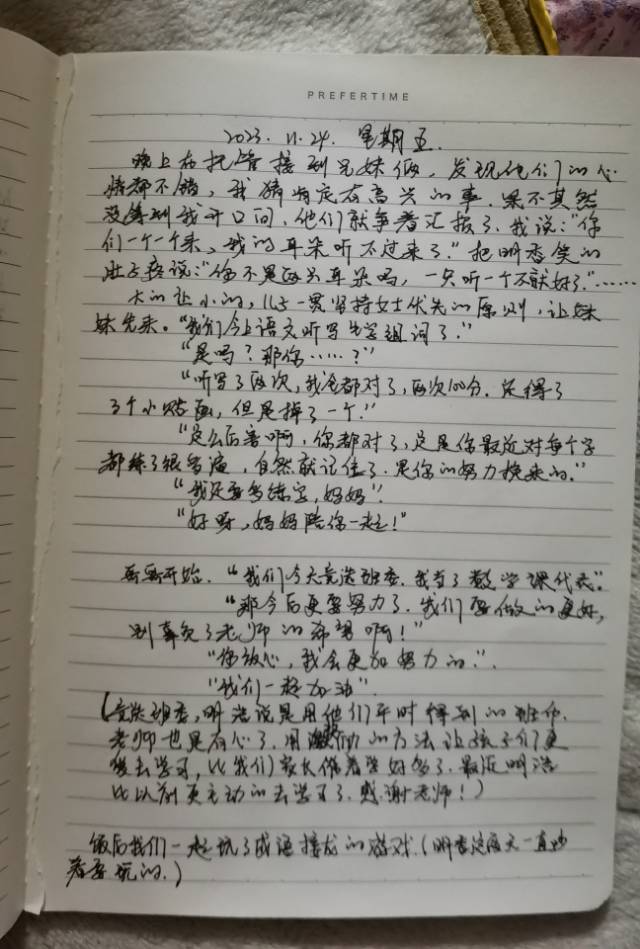 PREFERTIME
2023.11.24. 星期五.
晚上在托管接到兄妹俩,发现他们的心
情都不错,我猜肯定有高兴的事.果不其然
没等到我开口问,他们就争着汇报了.我说:"你
们一个一个来,我的耳朵听不过来了."把明香笑的
肚子疼说:"你不是两只耳朵吗,一只听一个不就好了."……
大的让小的,儿子一贯坚持女士优先的原则,让妹
妹先来。"我们今上语文听写生字组词了."
"是吗?那你……?"
"听写了两次,我全都对了,两次100分.还得了
3个小贴画,但是掉了一个."
"这么厉害啊,你都对了,这是你最近对每个字
都练了很多遍,自然就记住了.是你的努力换来的."
"我还要多练字,妈妈"
"好呀,妈妈陪你一起!"
哥哥开始."我们今天竞选班委.我当了数学课代表".
"那今后更要努力了.我们要做的更好,
别辜负了老师的希望啊!"
"你放心,我会更加努力的."
"我们一起加油".
(竞选班委,明浩说是用他们平时得到的班币.
老师也是有心了.用激励的方法让孩子们更
去学习,比我们家长催着学好多了.最近明浩
比以前更主动的去学习了.感谢老师!)
饭后我们一起玩了成语接龙的游戏.(明香这两天一直吵
着要玩的.)